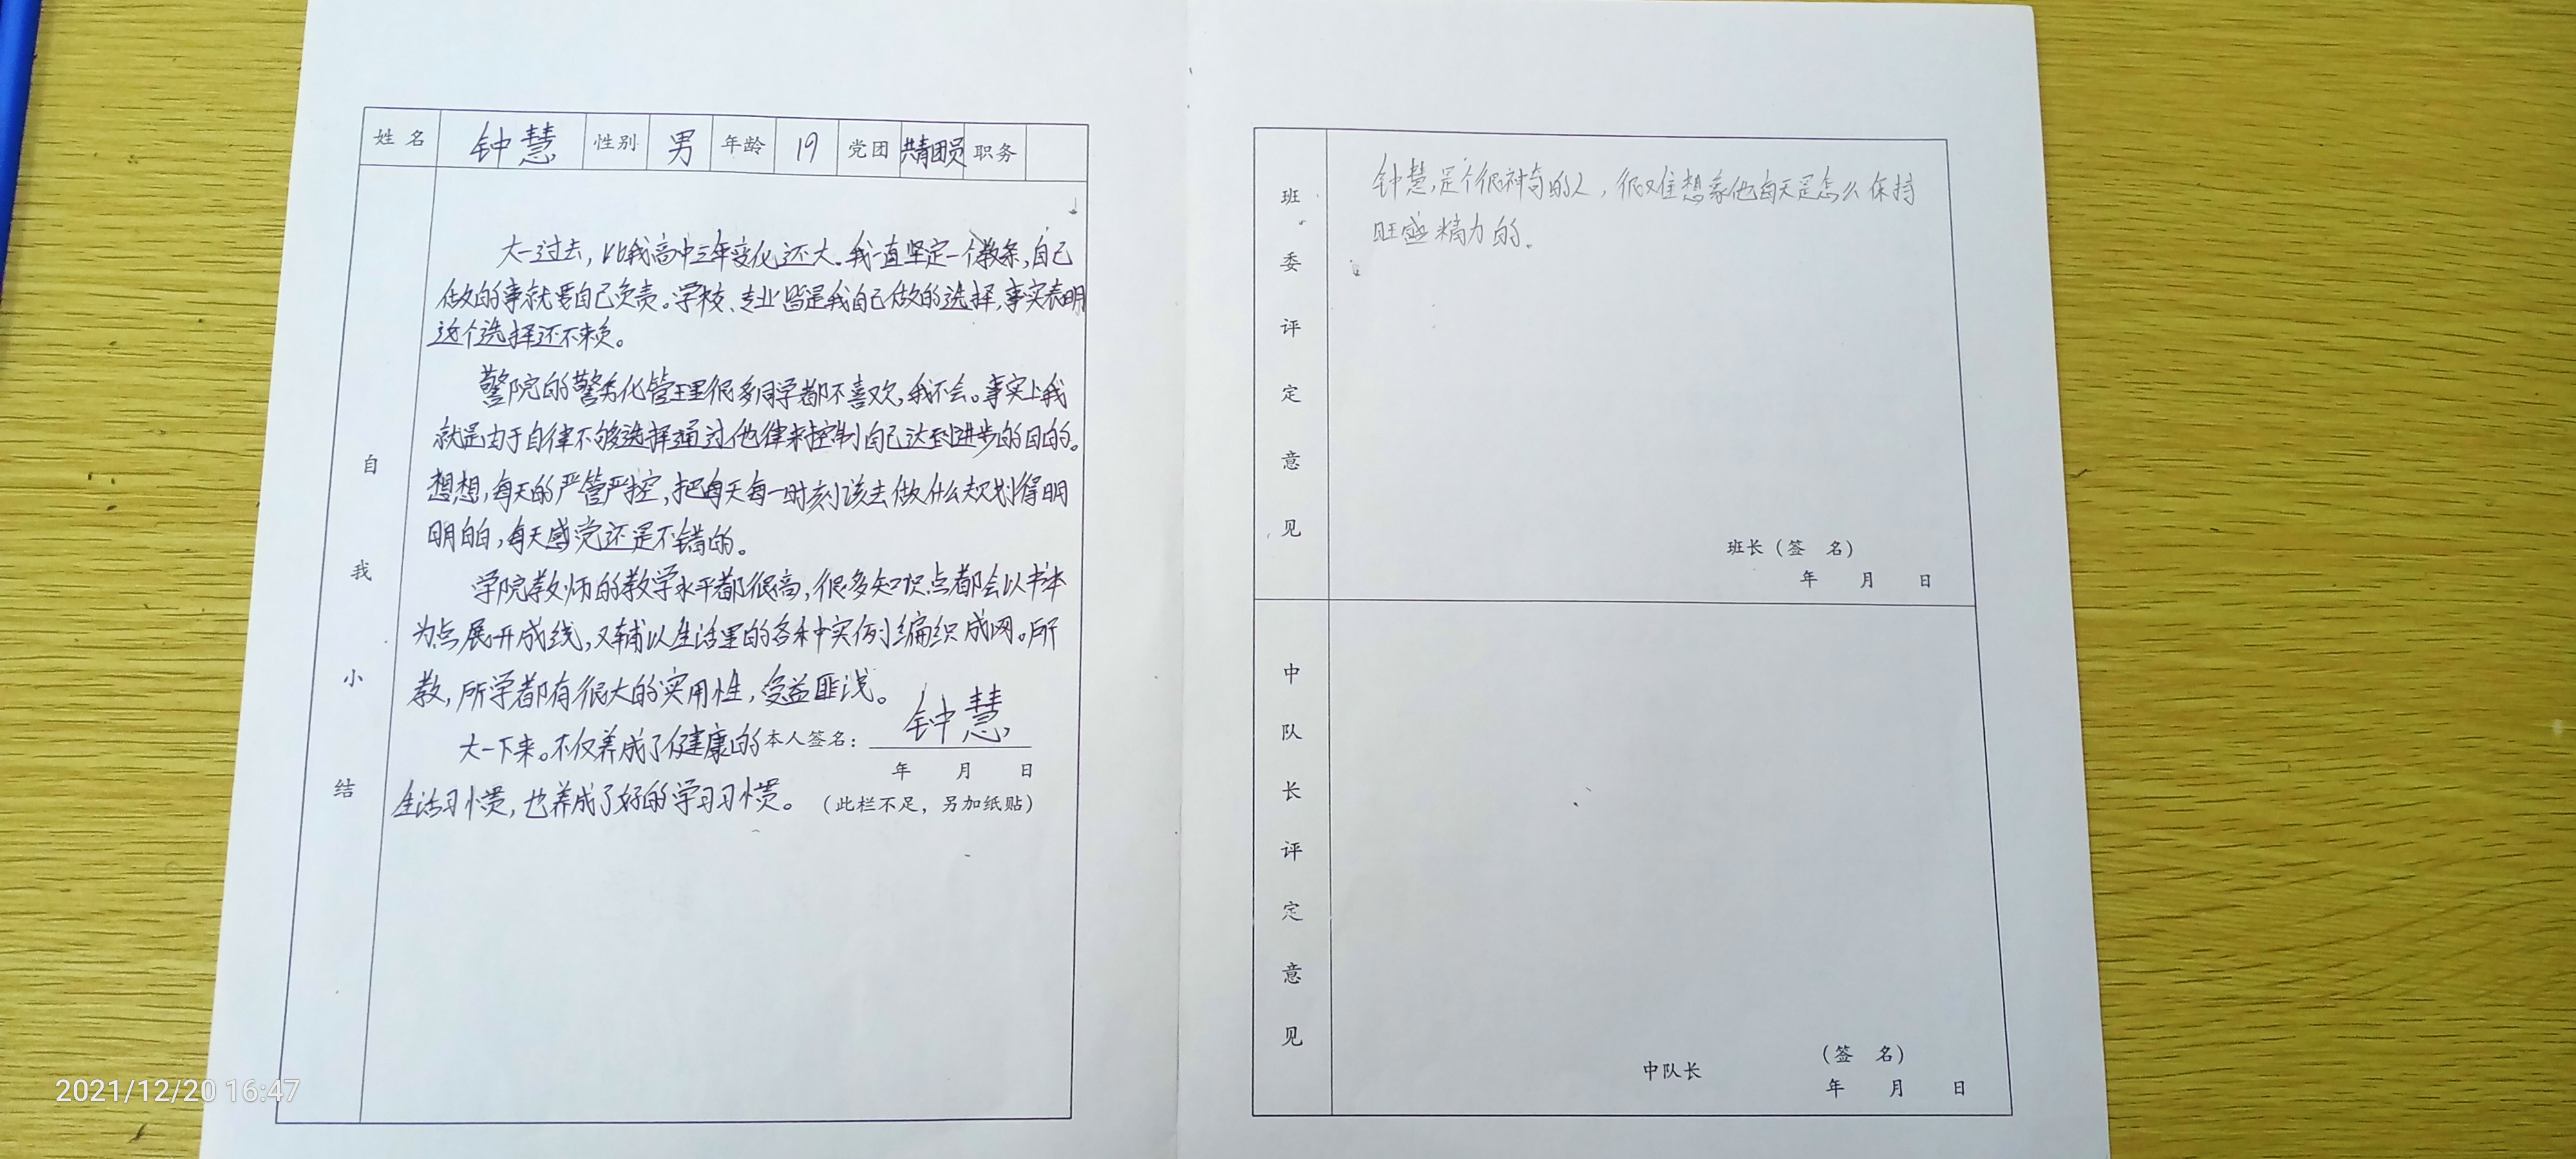 姓名 钟慧 性别 男 年龄 19 党团 共青团员 职务
自我小结
大一过去，比我高中三年变化还大。我一直坚定一个教条，自己
做的事就要自己负责。学校、专业皆是我自己做的选择，事实表明
这个选择还不赖。
警院的警务化管理很多同学都不喜欢，我不会。事实上我
就是由于自律不够选择通过他律来控制自己达到进步的目的。
想想，每天的严管严控，把每天每一时刻该去做什么规划得明
明白白，每天感觉还是不错的。
学院教师的教学水平都很高，很多知识点都会以书本
为点展开成线，又辅以生活里的各种实例编织成网。所
教，所学都有很大的实用性，受益匪浅。
大一下来。不仅养成了健康的
生活习惯，也养成了好的学习习惯。
本人签名：钟慧
年 月 日
（此栏不足，另加纸贴）
班委评定意见
钟慧，是个很神奇的人，很难想象他每天是怎么保持
旺盛精力的。
班长（签 名）
年 月 日
中队长评定意见
（签 名）
中队长
年 月 日
2021/12/20 16:47